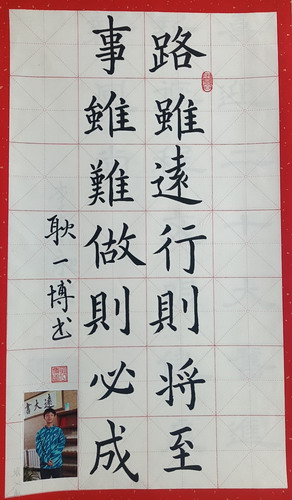 路雖遠行則将至
事雖難做則必成
耿一博书